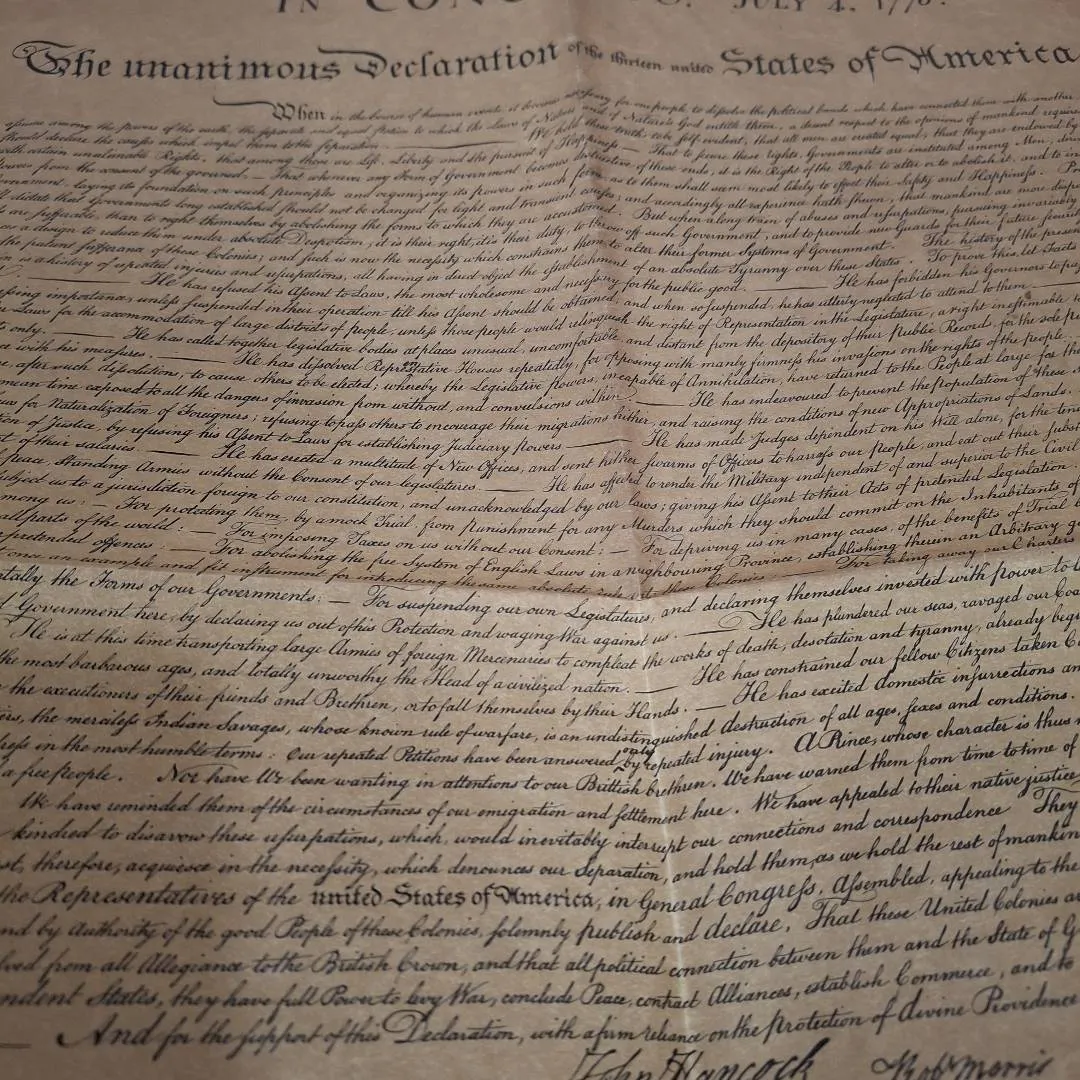 IN CONG JULY 4, 1776.
The unanimous Declaration of the thirteen united States of America
When in the course of human events it becomes necessary for one people to dissolve the political bands which have connected them with another
among the powers of the earth, the separate and equal station to which the Laws of Nature and of Nature's God entitle them, a decent respect to the opinions of mankind requires
should declare the causes which impel them to the separation. We hold these truths to be self-evident, that all men are created equal, that they are endowed by
with certain unalienable Rights, that among these are Life, Liberty and the pursuit of Happiness — That to secure these rights, Governments are instituted among Men,
powers from the consent of the governed, — That whenever any Form of Government becomes destructive of these ends, it is the Right of the People to alter or to abolish it, and to
Government, laying its foundation on such principles and organizing its powers in such form, as to them shall seem most likely to effect their Safety and Happiness.
dictate that Governments long established should not be changed for light and transient causes; and accordingly all experience hath shewn, that mankind are more
are sufferable, than to right themselves by abolishing the forms to which they are accustomed. But when a long train of abuses and usurpations, pursuing invariably
a design to reduce them under absolute Despotism, it is their right, it is their duty, to throw off such Government, and to provide new Guards for their future
the patient sufferance of these Colonies; and such is now the necessity which constrains them to alter their former Systems of Government. The history of the present
is a history of repeated injuries and usurpations, all having in direct object the establishment of an absolute Tyranny over these States. To prove this, let Facts
He has refused his Assent to Laws, the most wholesome and necessary for the public good. He has forbidden his Governors to
pressing importance, unless suspended in their operation till his Assent should be obtained, and when so suspended, he has utterly neglected to attend to them.
Laws for the accommodation of large districts of people, unless those people would relinquish the right of Representation in the Legislature, a right inestimable to
only. — He has called together legislative bodies at places unusual, uncomfortable and distant from the depository of their Public Records, for the sole
with his measures. — He has dissolved Representative Houses repeatedly, for opposing with manly firmness his invasions on the rights of the people.
after such dissolutions, to cause others to be elected; whereby the Legislative powers, incapable of Annihilation, have returned to the People at large for
mean time exposed to all the dangers of invasion from without, and convulsions within. — He has endeavoured to prevent the population of these
for Naturalization of Foreigners; refusing to pass others to encourage their migrations hither, and raising the conditions of new Appropriations of Lands.
of Justice, by refusing his Assent to Laws for establishing Judiciary powers — He has made Judges dependent on his Will alone, for the
of their salaries. — He has erected a multitude of New Offices, and sent hither swarms of Officers to harrass our People, and eat out their
peace, Standing Armies without the Consent of our legislatures. — He has affected to render the Military independent of and superior to the Civil
subject us to a jurisdiction foreign to our constitution, and unacknowledged by our laws; giving his Assent to their Acts of pretended Legislation.
among us: — For protecting them, by a mock Trial, from Punishment for any Murders which they should commit on the Inhabitants of
all parts of the world: — For imposing Taxes on us without our Consent: — For depriving us in many cases, of the benefits of Trial
pretended offences. — For abolishing the free System of English Laws in a neighbouring Province, establishing therein an Arbitrary
once an example and fit instrument for introducing the same absolute rule into these Colonies — For taking away our Charters
the Forms of our Governments: — For suspending our own Legislatures, and declaring themselves invested with power to
Government here, by declaring us out of his Protection and waging War against us. — He has plundered our seas, ravaged our
He is at this time transporting large Armies of foreign Mercenaries to compleat the works of death, desolation and tyranny, already
the most barbarous ages, and totally unworthy the Head of a civilized nation. — He has constrained our fellow Citizens taken
the executioners of their friends and Brethren, or to fall themselves by their Hands. — He has excited domestic insurrections
the merciless Indian Savages, whose known rule of warfare, is an undistinguished destruction of all ages, sexes and conditions.
in the most humble terms: Our repeated Petitions have been answered only by repeated injury. A Prince, whose character is thus
a free People. Nor have We been wanting in attentions to our Brittish brethren. We have warned them from time to time of
We have reminded them of the circumstances of our emigration and settlement here. We have appealed to their native justice
kindred to disavow these usurpations, which, would inevitably interrupt our connections and correspondence They
therefore, acquiesce in the necessity, which denounces our Separation, and hold them, as we hold the rest of mankind
the Representatives of the united States of America, in General Congress, Assembled, appealing to the
and by Authority of the good People of these Colonies, solemnly publish and declare, That these United Colonies
from all Allegiance to the British Crown, and that all political connection between them and the State of
States, they have full Power to levy War, conclude Peace, contract Alliances, establish Commerce, and to
And for the support of this Declaration, with a firm reliance on the protection of divine Providence
John Hancock Robt Morris